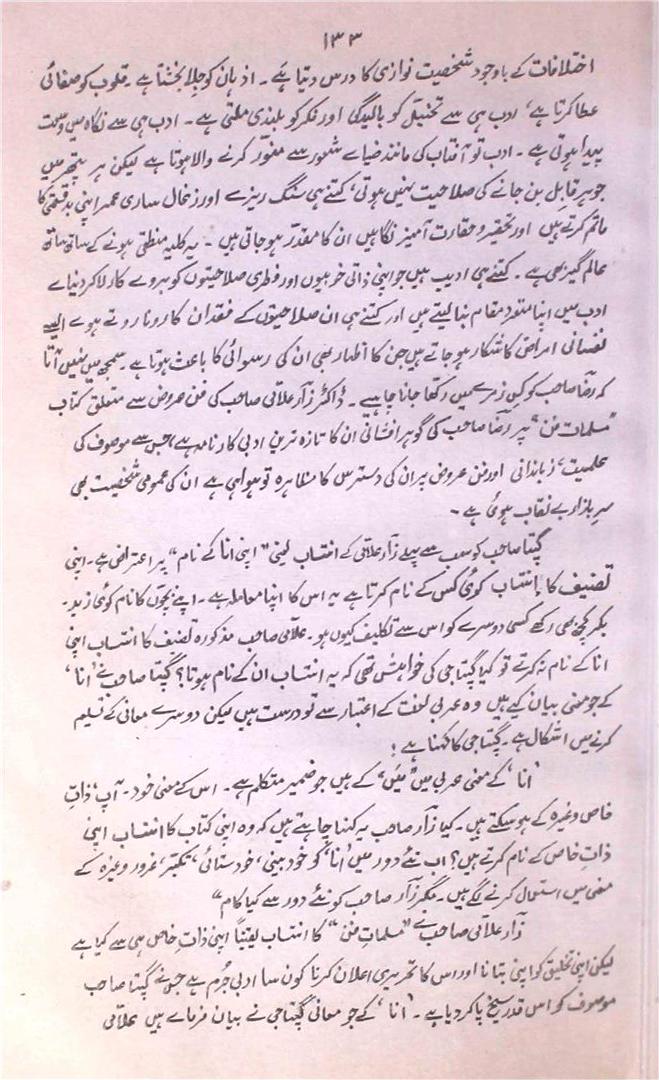 ۱۳۳
اختلافات کے باوجود شخصیت نوازی کا درس دیتا ہے۔ اذہان کو جِلا بخشتا ہے۔ قلوب کو صفائی
عطا کرتا ہے، ادب ہی سے تخیّل کو بالیدگی اور فکر کو بلندی ملتی ہے۔ ادب ہی سے نگاہ میں وسعت
پیدا ہوتی ہے۔ ادب تو آفتاب کی مانند ضیاے شعور سے منوّر کرنے والا ہوتا ہے لیکن ہر پتھر میں
جوہرِ قابل بن جانے کی صلاحیت نہیں ہوتی، کتنے ہی سنگ ریزے اور زغال ساری عمر اپنی بدقسمتی کا
ماتم کرتے ہیں اور تحقیر و حقارت آمیز نگاہیں ان کا مقدّر ہو جاتی ہیں۔ یہ کلیہ منطقی ہونے کے ساتھ ساتھ
عالم گیر بھی ہے۔ کتنے ہی ادیب ہیں جو اپنی ذاتی خوبیوں اور فطری صلاحیتوں کو بروے کار لا کر دنیاے
ادب میں اپنا منفرد مقام بنا لیتے ہیں اور کتنے ہی ان صلاحیتوں کے فقدان کا رونا روتے ہوے ایسے
نفسانی امراض کا شکار ہو جاتے ہیں جن کا اظہار بھی ان کی رسوائی کا باعث ہوتا ہے۔ سمجھ میں نہیں آتا
کہ رضا صاحب کو کس زمرے میں رکھا جانا چاہیے۔ ڈاکٹر زآر علاقی صاحب کی فن عروض سے متعلق کتاب
”مسلماتِ فن“ پر رضا صاحب کی گوہر افشانی ان کا تازہ ترین ادبی کارنامہ ہے، جس سے موصوف کی
علمیت، زباندانی اور فن عروض پر ان کی دسترس کا مظاہرہ تو ہوا ہی ہے ان کی عمومی شخصیت بھی
سرِ بازار بے نقاب ہوئی ہے۔
گپتا صاحب کو سب سے پہلے زآر علاقی کے انتساب یعنی ”اپنی انا کے نام“ پر اعتراض ہے۔ اپنی
تصنیف کا اِنتساب کوئی کس کے نام کرتا ہے یہ اس کا اپنا معاملہ ہے۔ اپنے بچوں کا نام کوئی زید۔
بکر کچھ بھی رکھے کسی دوسرے کو اس سے تکلیف کیوں ہو۔ علاقی صاحب مذکورہ تصنیف کا انتساب اپنی
انا کے نام نہ کرتے تو کیا گپتا جی کی خواہش تھی کہ یہ انتساب ان کے نام ہوتا؟ گپتا صاحب نے ’انا‘
کے جو معنی بیان کیے ہیں وہ عربی لغت کے اعتبار سے تو درست ہیں لیکن دوسرے معانی کے تسلیم
کرنے میں اشکال ہے۔ گپتا جی کا کہنا ہے:
’انا‘ کے معنی عربی میں ”میں“ کے ہیں جو ضمیر متکلم ہے۔ اس کے معنی خود۔ آپ، ذاتِ
خاص وغیرہ کے ہو سکتے ہیں۔ کیا زآر صاحب یہ کہنا چاہتے ہیں کہ وہ اپنی کتاب کا انتساب اپنی
ذاتِ خاص کے نام کرتے ہیں؟ اب نئے دور میں ’انا‘ کو خود بینی، خود ستائی، تکبّر، غرور وغیرہ کے
معنی میں استعمال کرنے لگے ہیں۔ مگر زآر صاحب کو نئے دور سے کیا کام“
زآر علاقی صاحب نے ”مسلماتِ فن“ کا انتساب یقیناً اپنی ذاتِ خاص ہی سے کیا ہے
لیکن اپنی تخلیق کو اپنی بتانا اور اس کا تحریری اعلان کرنا کون سا ادبی جُرم ہے جس نے گپتا صاحب
موصوف کو اس قدر سیخ پا کر دیا ہے۔ ’انا‘ کے جو معانی گپتا جی نے بیان فرماے ہیں علاقی